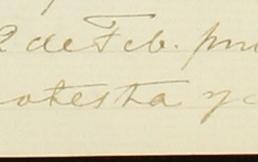 2 de Feb. pr
otesta y c